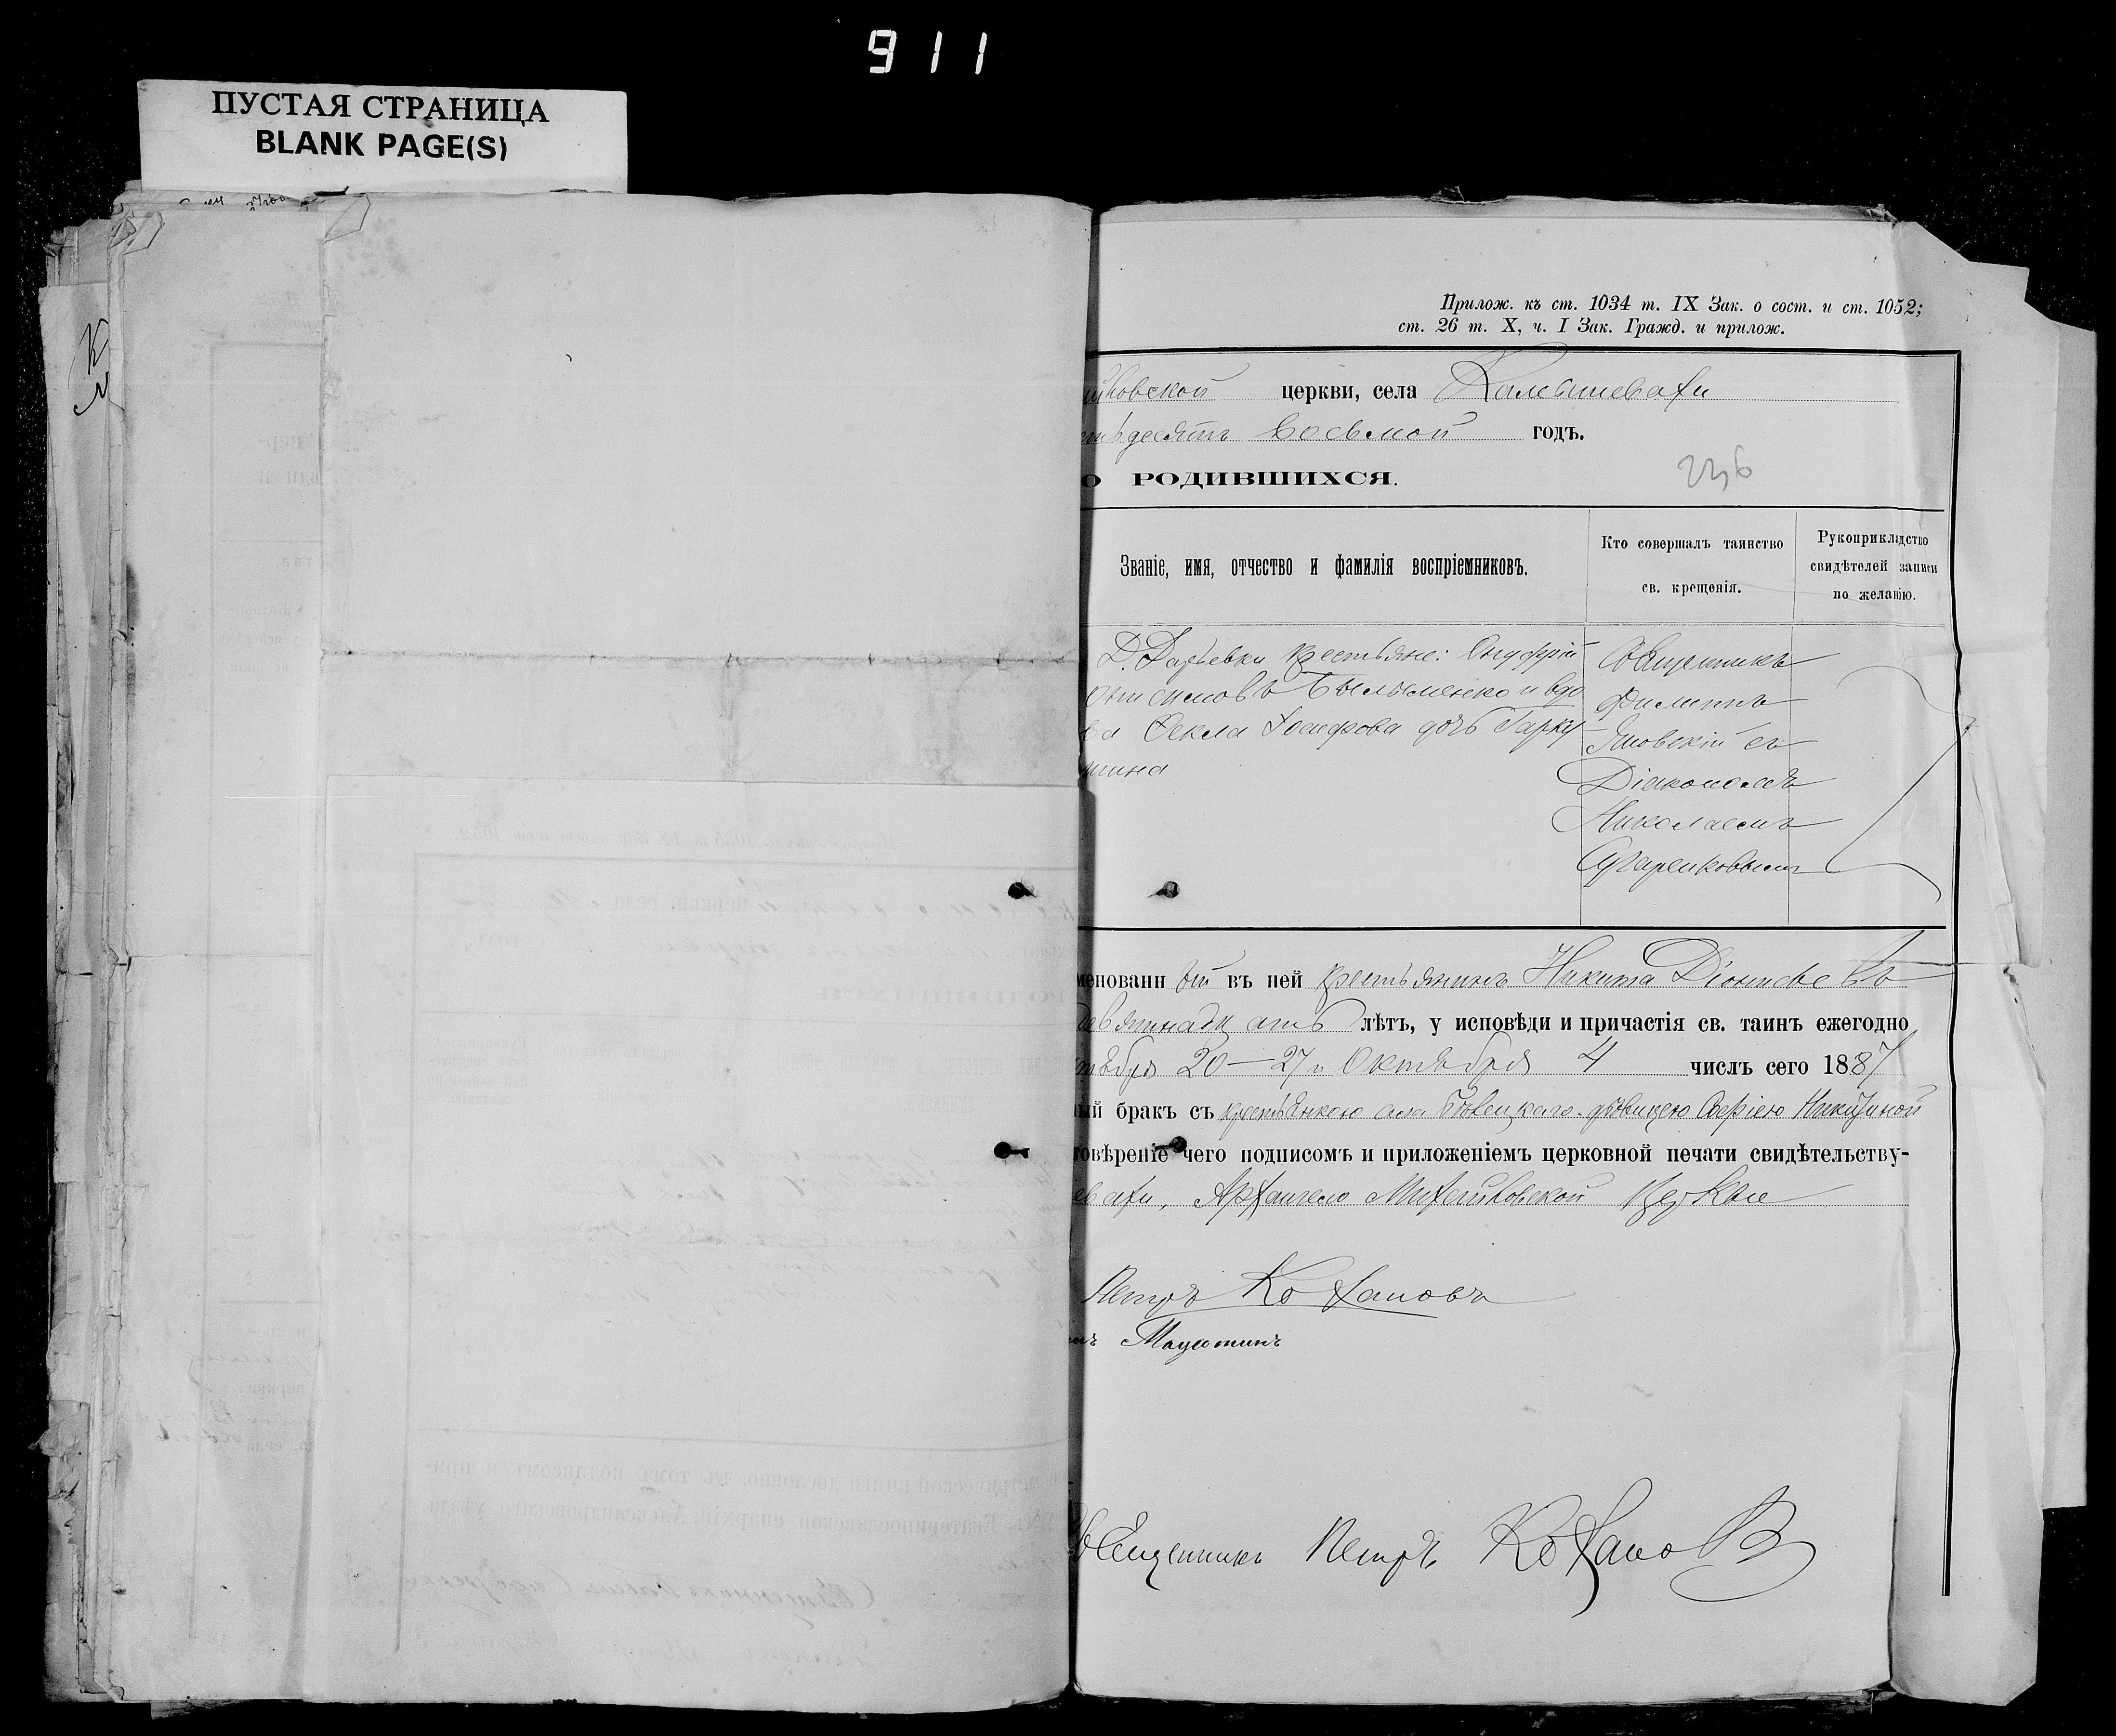 911
ПУСТАЯ СТРАНИЦА
BLANK PAGE(S)
Прилож. къ ст. 1034 т. IX Зак. о сост. и ст. 1052;
ст. 26 т. X, ч. I Зак. Гражд. и прилож.
церкви, села Камышевахи
десятъ восьмой годъ.
О РОДИВШИХСЯ.
236
Званіе, имя, отчество и фамилія воспріемниковъ.
Кто совершалъ таинство
св. крещенія.
Рукоприкладство
свидѣтелей записи
по желанію.
Д. Дарьевки крестьяне: Онуфрій
Онисимовъ и вдо
ва Фекла Іосифова дочь Гарку
шина
Священникъ
Филиппъ
Яновскій съ
Діакономъ
Николаемъ
менованный въ ней крестьянинъ Никита Діонисіевъ
девятнадцать лѣтъ, у исповѣди и причастія св. таинъ ежегодно
тября 20—27 и Октября 4 числъ сего 1887
ый бракъ съ крестьянкою села дѣвицею Никитиной
товѣреніе чего подписомъ и приложеніемъ церковной печати свидѣтельству-
евахи, Архангело Михайловской Церкви
Петръ Кохановъ
Священникъ Петръ Кохановъ